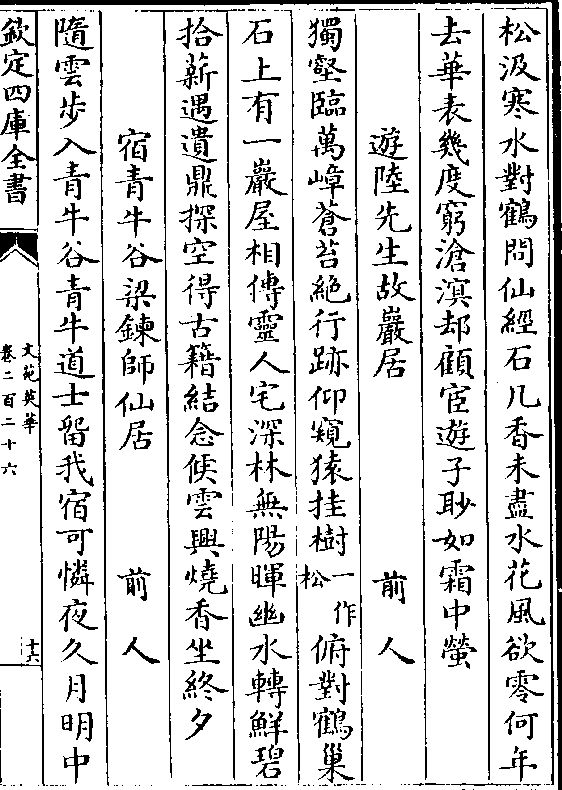 松汲寒水對鶴問仙經石几香未盡水花風欲零何年
去華表幾度窮滄溟却顧宦遊子眇如霜中螢
遊陸先生故巖居 前人
獨壑臨萬嶂蒼苔絶行跡仰窺猿挂樹一作松俯對鶴巢
石上有一巖屋相傳靈人宅深林無陽暉幽水轉鮮碧
拾薪遇遺鼎探空得古籍結念候雲興燒香坐終夕
宿青牛谷梁鍊師仙居 前人
隨雲步入青牛谷青牛道士留我宿可憐夜久月明中
欽定四庫全書
文苑英華
卷二百二十六
十六